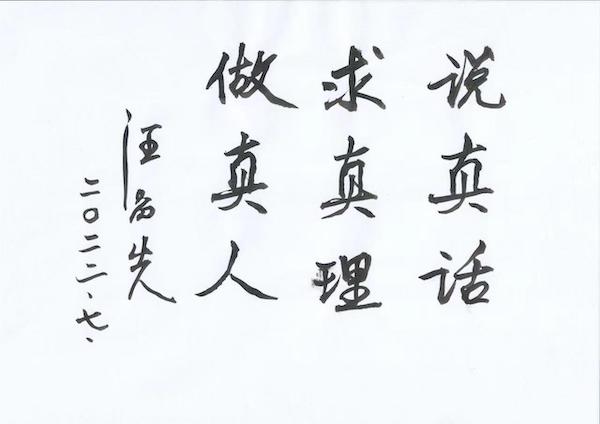 说真话
求真理
做真人
汪品先
二〇二二、七、